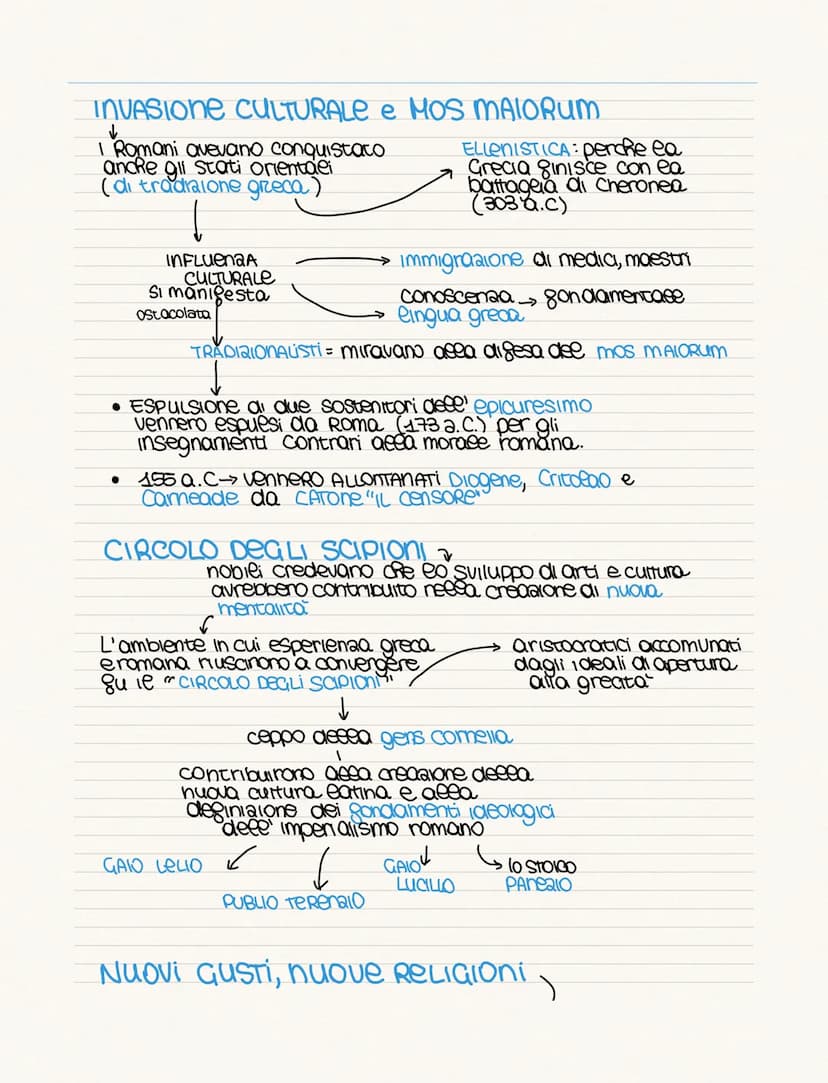 INVASIONE CULTURALE e MOS MAIORUM
I Romani avevano conquistato
anche gli stati orientali
(di tradizione greca)
ELLENISTICA: perche la
Grecia finisce con la
battaglia di Cheronea
(303 a.C)
INFLUENZA
CULTURALE
si manifesta
ostacolata
immigrazione di medici, maestri
conoscenza → fondamentale
lingua greca
TRADIZIONALISTI = miravano alla difesa del MOS MAIORUM
• ESPULSIONE di due sostenitori dell' epicuresimo
vennero espulsi da Roma (173 a.C.) per gli
insegnamenti contrari alla morale romana.
• 155 a.C → vennero ALLONTANATI Diogene, Critolao e
Carneade da CATONE "IL CENSORE"
CIRCOLO DEGLI SCIPIONI
nobili credevano che lo sviluppo di arti e cultura
avrebbero contribuito nella creazione di nuova
mentalità
L'ambiente in cui esperienza greca
e romana riuscirono a convergere
fu il "CIRCOLO DEGLI SCIPIONI"
aristocratici accomunati
dagli ideali di apertura
alla grecità
ceppo della gens Cornelia
contribuirono alla creazione della
nuova cultura latina e alla
definizione dei fondamenti ideologici
dell' imperialismo romano
GAIO LELIO
PUBLIO TERENZIO
GAIO
LUCILIO
lo stoico
PANEZIO
NUOVI GUSTI, NUOVE RELIGIONI